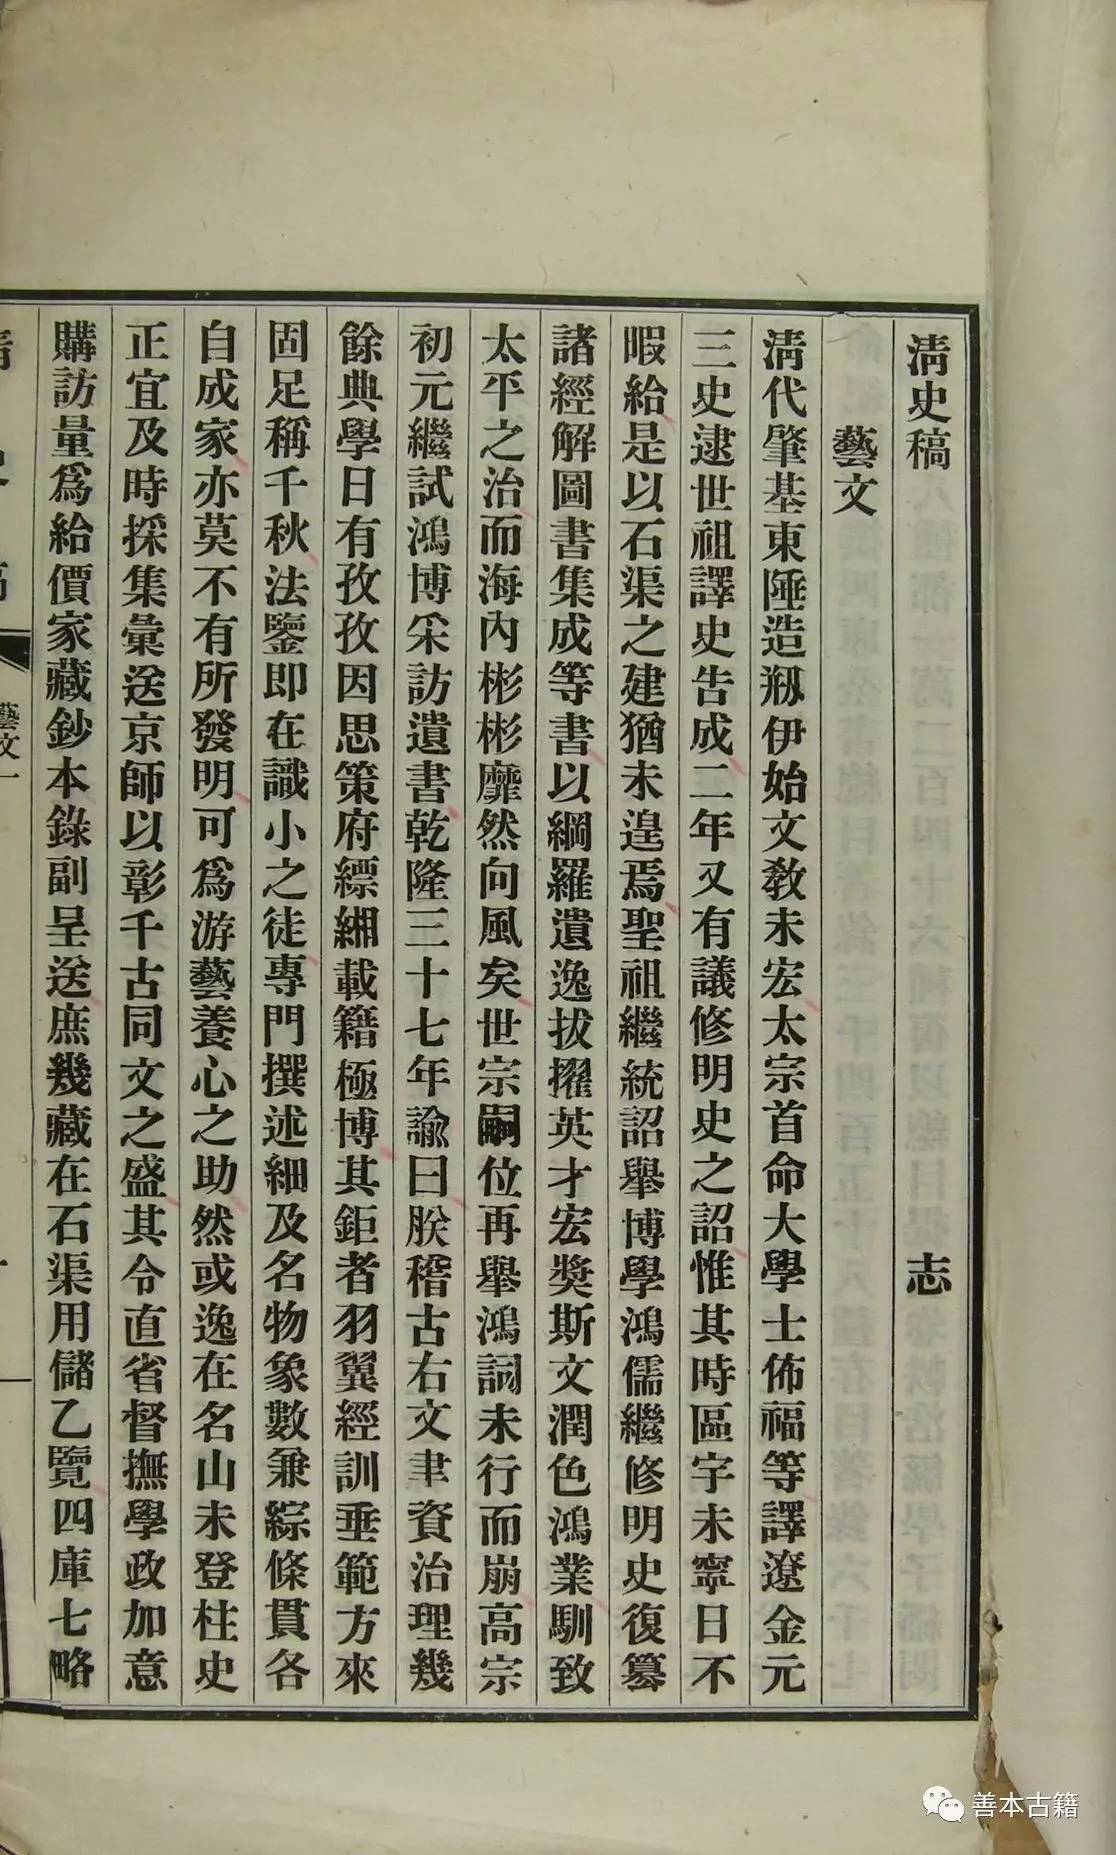 清史稿 志
藝文
清代肇基東陲造刱伊始文教未宏太宗首命大學士佈福等譯遼金元
三史逮世祖譯史告成二年又有議修明史之詔惟其時區宇未寧日不
暇給是以石渠之建猶未遑焉聖祖繼統詔舉博學鴻儒繼修明史復纂
諸經解圖書集成等書以綱羅遺逸拔擢英才宏獎斯文潤色鴻業馴致
太平之治而海內彬彬靡然向風矣世宗嗣位再舉鴻詞未行而崩高宗
初元繼試鴻博采訪遺書乾隆三十七年諭曰朕稽古右文聿資治理幾
餘典學日有孜孜因思策府縹緗載籍極博其鉅者羽翼經訓垂範方來
固足稱千秋法鑒即在識小之徒專門撰述細及名物象數兼綜條貫各
自成家亦莫不有所發明可爲游藝養心之助然或逸在名山未登柱史
正宜及時採集彙送京師以彰千古同文之盛其令直省督撫學政加意
購訪量爲給價家藏鈔本錄副呈送庶幾藏在石渠用儲乙覽四庫七略
藝文一
善本古籍